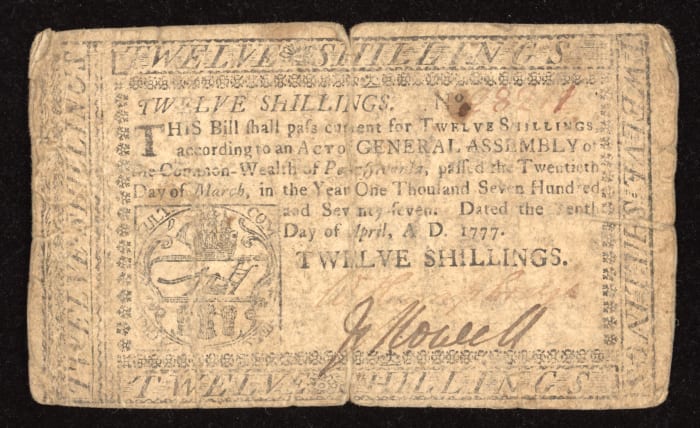 TWELVE SHILLINGS
TWELVE SHILLINGS
TWELVE SHILLINGS. No
THIS Bill shall pass current for TWELVE SHILLINGS,
according to an ACT of GENERAL ASSEMBLY of
the Common-Wealth of Pennsylvania, passed the Twentieth
Day of March, in the Year One Thousand Seven Hundred
and Seventy-seven. Dated the Tenth
Day of April, A. D. 1777.
TWELVE SHILLINGS.
Js Howell
TWELVE SHILLINGS
TWELVE SHILLINGS